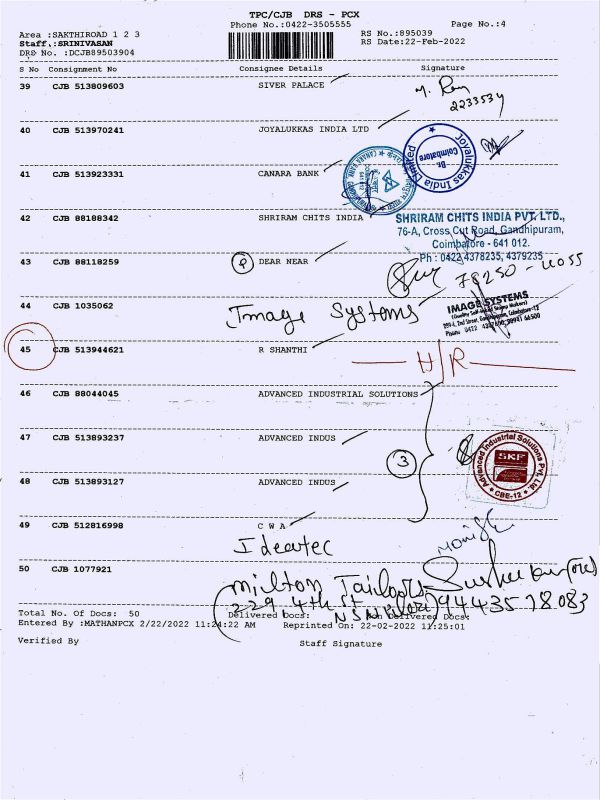 TPC/CJB DRS - PCX
Phone No.:0422-3505555
Page No.:4
Area :SAKTHIROAD 1 2 3
RS No.:895039
Staff.:SRINIVASAN
RS Date:22-Feb-2022
DRS No. :DCJB89503904
S No Consignment No Consignee Details Signature
39 CJB 513809603 SIVER PALACE
2233534
40 CJB 513970241 JOYALUKKAS INDIA LTD
Joyalukkas India Limited
Br.
Coimbatore
41 CJB 513923331 CANARA BANK
42 CJB 88188342 SHRIRAM CHITS INDIA
SHRIRAM CHITS INDIA PVT. LTD.,
76-A, Cross Cut Road, Gandhipuram,
Coimbatore - 641 012.
Ph : 0422 4378235, 4379235
43 CJB 88118259 P DEAR NEAR
78250-40055
44 CJB 1035062 Image Systems
IMAGE SYSTEMS
45 CJB 513944621 R SHANTHI
H/R
46 CJB 88044045 ADVANCED INDUSTRIAL SOLUTIONS
47 CJB 513893237 ADVANCED INDUS
3
Advanced Industrial Solutions Pvt. Ltd.
SKF
* CBE-12 *
48 CJB 513893127 ADVANCED INDUS
49 CJB 512816998 C W A
Ideatec
50 CJB 1077921
Milton Tailors
229, 4th St
9443578083
Total No. Of Docs: 50 Delivered Docs: Non Delivered Docs:
Entered By :MATHANPCX 2/22/2022 11:24:22 AM Reprinted On: 22-02-2022 11:25:01
Verified By Staff Signature